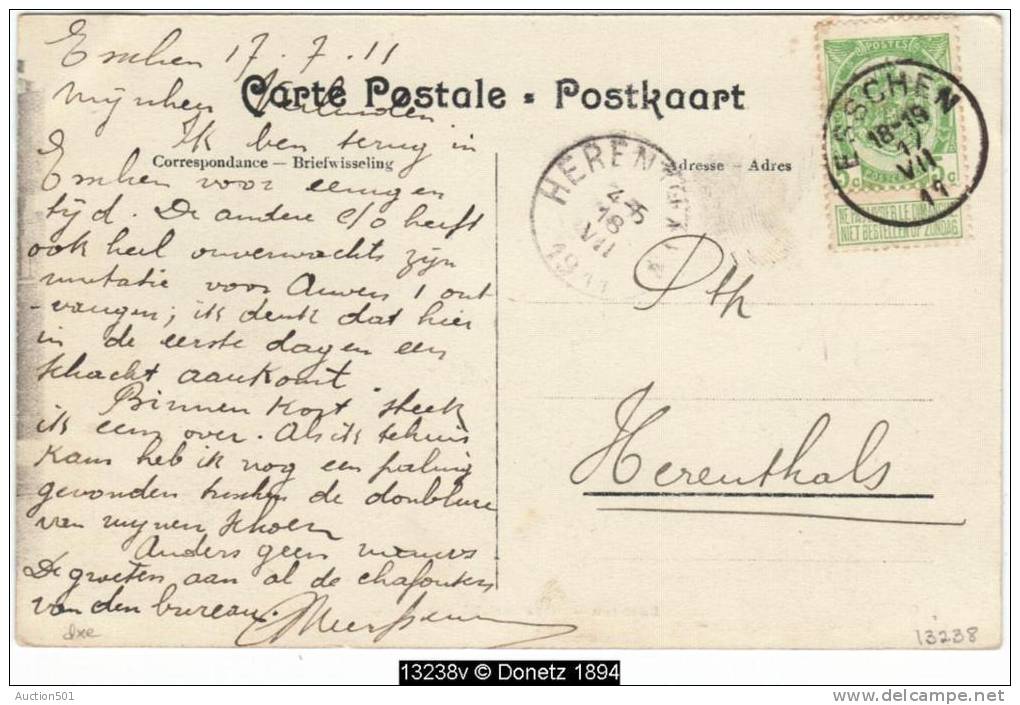 Esschen 17.7.11
Carte Postale = Postkaart
Mijnheer
Ik ben terug in
Correspondance — Briefwisseling
Adresse — Adres
Esschen voor eenigen
tijd. De andere c/o heeft
ook heel onverwachts zijn
mutatie voor Anvers 1 ont
-vangen; ik denk dat hier
in de eerste dagen een
schacht aankomt.
Binnen kort steek
ik eens over. Als ik tehuis
kam heb ik nog een paling
gevonden tusschen de doublure
van mijnen schoen
Anders geen nieuws
De groeten aan al de
van den bureau.
dxe
POSTES
5c 5c
NIET BESTELLEN OP ZONDAG
ESSCHEN
18-19
17
VII
11
HEREN
4-5
18
VII
1911
Pth
Herenthals
13238
13238v © Donetz 1894
Auction501
www.delcampe.net